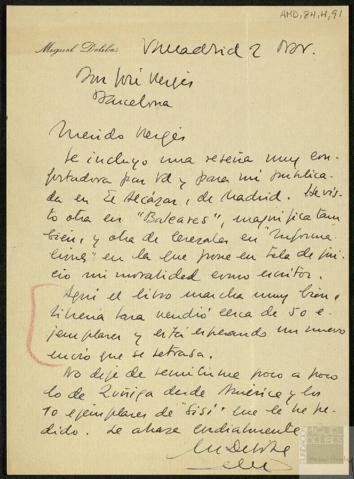 AMD, 84, 4, 91
Miguel Delibes
Valladrid 2 Nov.
Don José Vergés
Barcelona
Querido Vergés
Le incluyo una reseña muy con-
fortadora para Vd y para mi publica-
da en El Alcázar, de Madrid. He vis-
to otra en "Baleares", magnífica tam
bién, y otra de Cerezales en "Informa
ciones" en la que pone en tela de jui-
cio mi moralidad como escritor.
Aquí el libro marcha muy bien,
librería Lara vendió cerca de 50 e-
jemplares y está esperando un nuevo
envío que se retrasa.
No deje de remitirme poco a poco
lo de Zúñiga desde América y los
10 ejemplares de "Sisí" que le he pe-
dido. Le abraza cordialmente
M Delibes